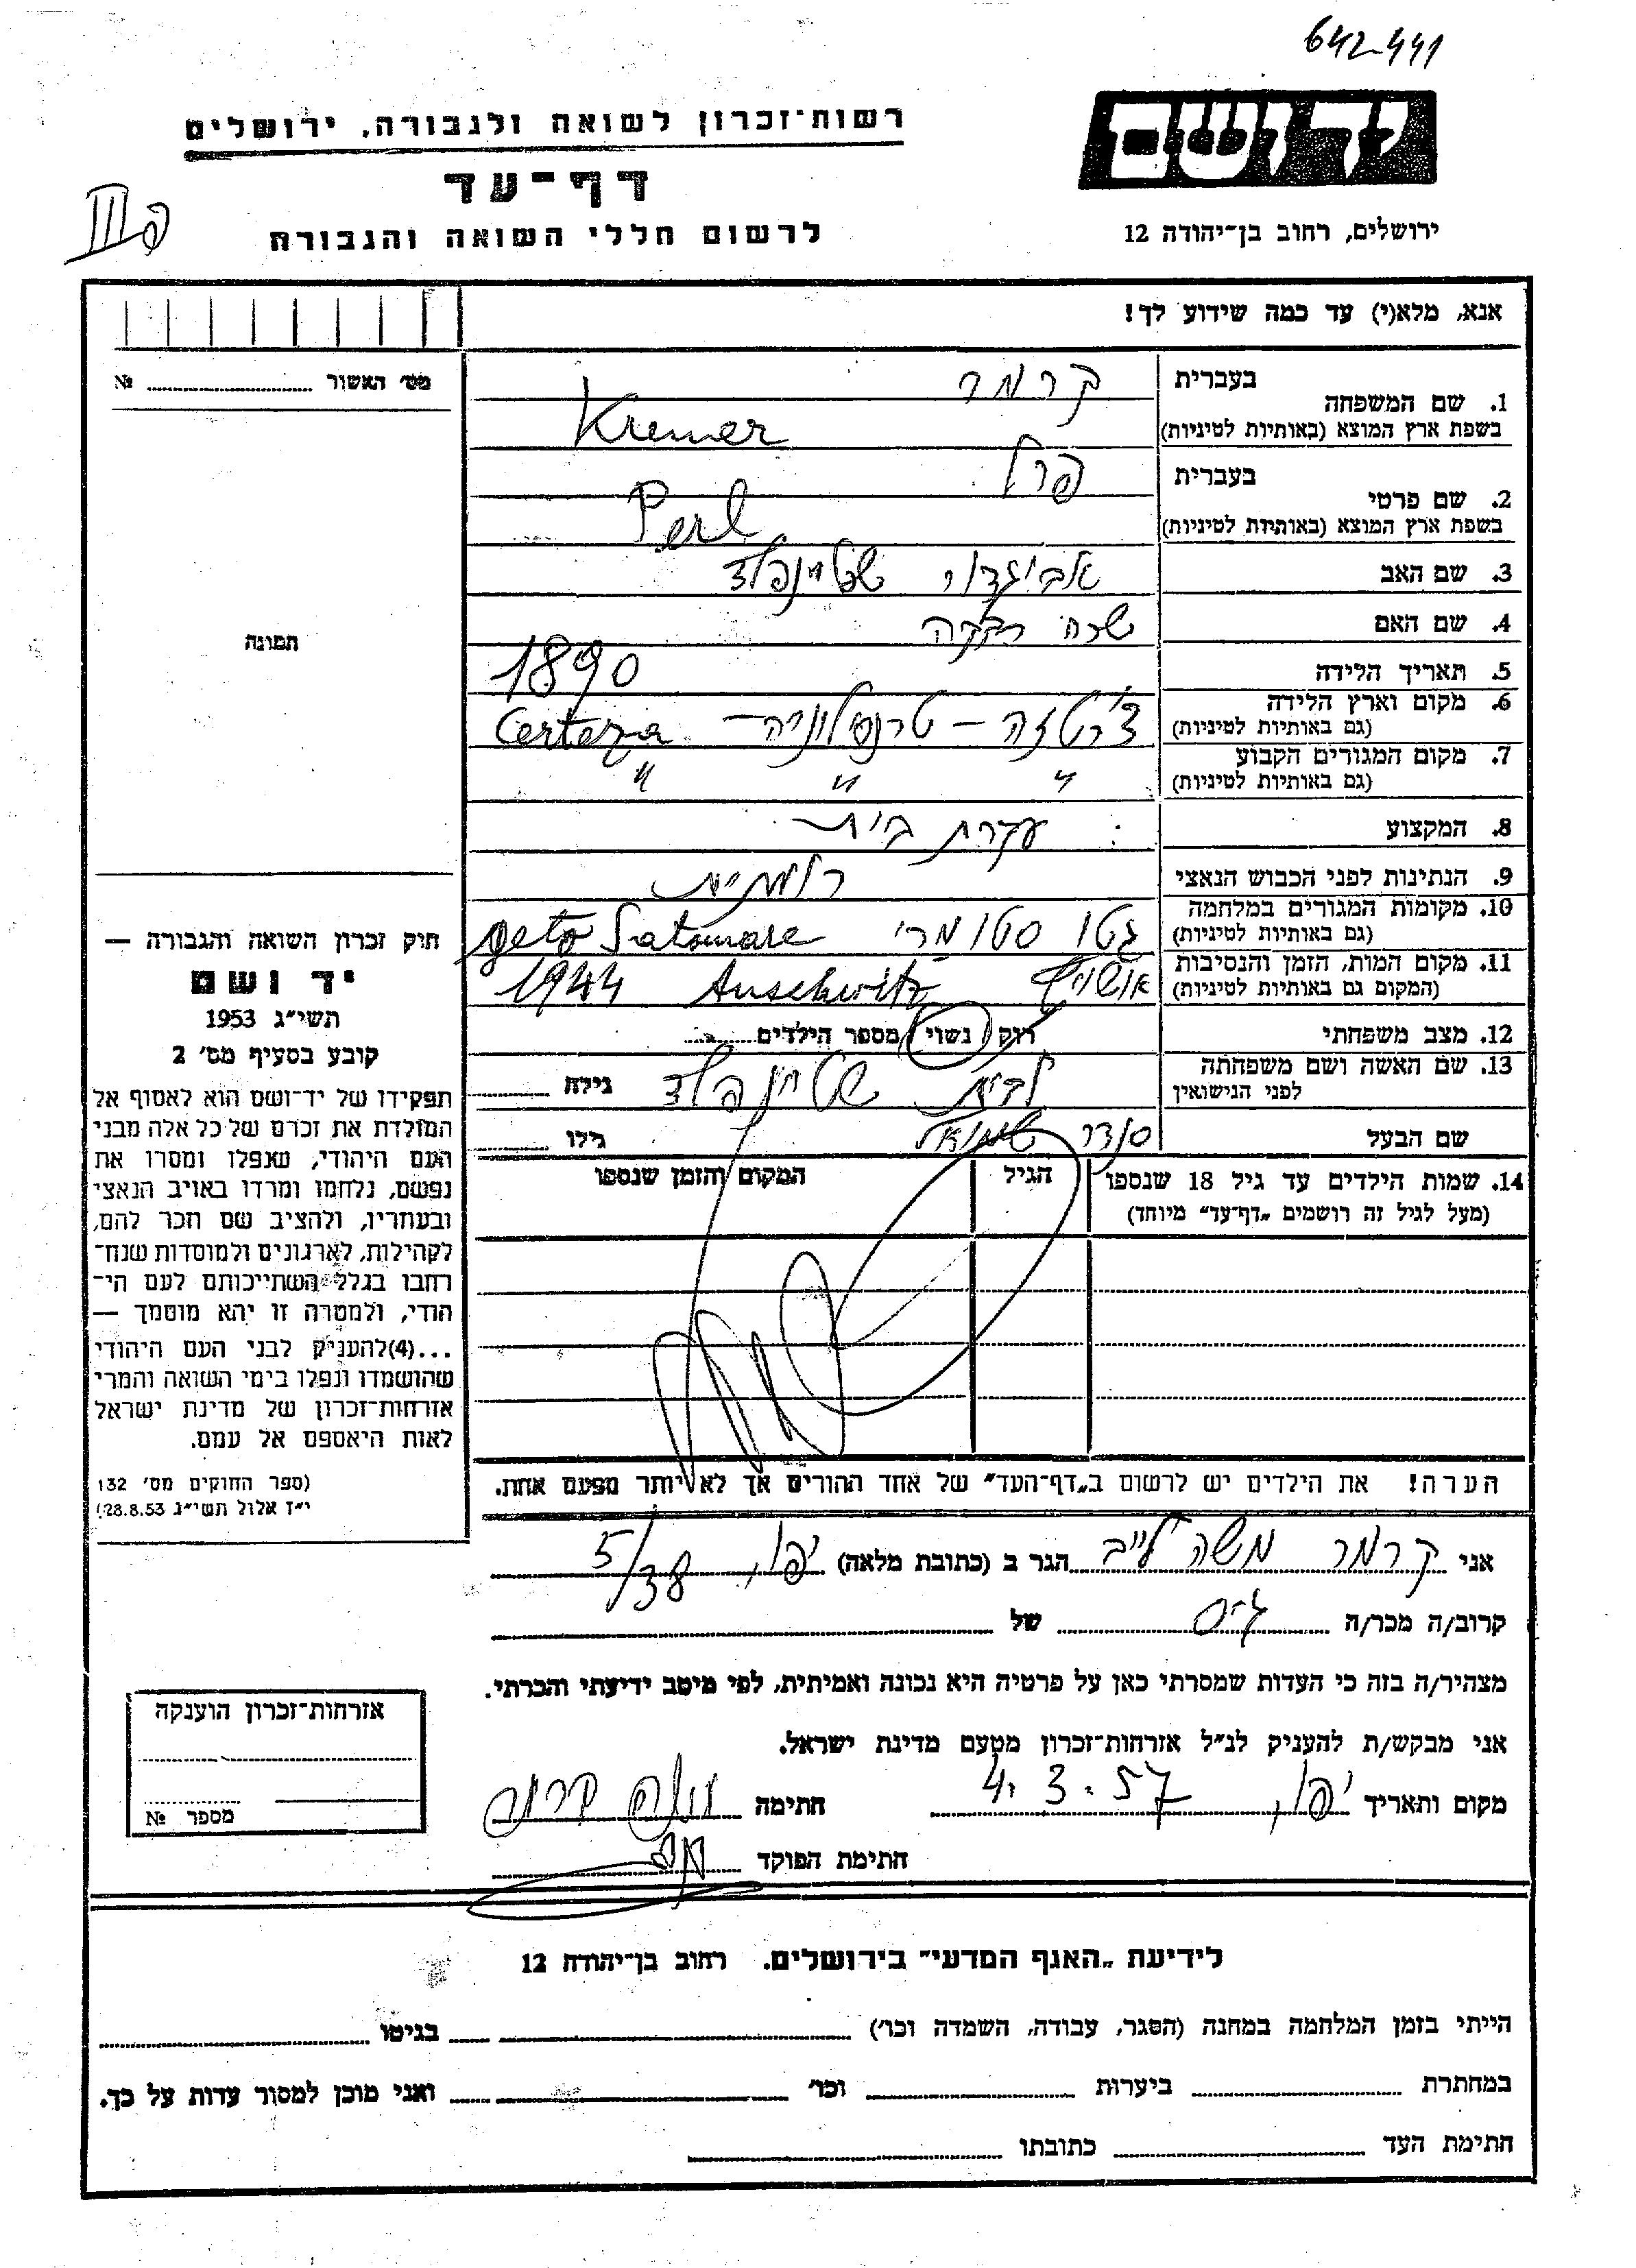 642-441
יד ושם
רשות־זכרון לשואה ולגבורה, ירושלים
דף־עד
לרשום חללי השואה והגבורה
ירושלים, רחוב בן־יהודה 12
אנא, מלא(י) עד כמה שידוע לך!
מס׳ האשור № 
1. שם המשפחה בעברית קרמר
בשפת ארץ המוצא (באותיות לטיניות) Kremer
2. שם פרטי בעברית פרל
בשפת ארץ המוצא (באותיות לטיניות) Perl
3. שם האב אביגדור שטיינפלד
4. שם האם שרה רבקה
5. תאריך הלידה 1890
6. מקום וארץ הלידה (גם באותיות לטיניות) צ׳רטזה – טרנסילווניה – Certeza
7. מקום המגורים הקבוע (גם באותיות לטיניות) " " "
8. המקצוע עקרת בית
9. הנתינות לפני הכבוש הנאצי רומנית
10. מקומות המגורים במלחמה (גם באותיות לטיניות) גטו סטומרי geto Satomare
11. מקום המות, הזמן והנסיבות (המקום גם באותיות לטיניות) אושויץ Auschwitz 1944
12. מצב משפחתי רווק נשוי מספר הילדים
13. שם האשה ושם משפחתה לפני הנישואין לבית שטיינפלד גילה
שם הבעל סנדר שמואל גילו
14. שמות הילדים עד גיל 18 שנספו הגיל המקום והזמן שנספו
(מעל לגיל זה רושמים „דף־עד" מיוחד)
הערה! את הילדים יש לרשום ב„דף־העד" של אחד ההורים אך לא יותר מפעם אחת.
תמונה
חוק זכרון השואה והגבורה —
יד ושם
תשי"ג 1953
קובע בסעיף מס׳ 2
תפקידו של יד־ושם הוא לאסוף אל
המולדת את זכרם של כל אלה מבני
העם היהודי, שנפלו ומסרו את
נפשם, נלחמו ומרדו באויב הנאצי
ובעוזריו, ולהציב שם וזכר להם,
לקהילות, לארגונים ולמוסדות שנח־
רבו בגלל השתייכותם לעם הי־
הודי, ולמטרה זו יהא מוסמך —
...(4)להעניק לבני העם היהודי
שהושמדו ונפלו בימי השואה והמרי
אזרחות־זכרון של מדינת ישראל
לאות היאספם אל עמם.
(ספר החוקים מס׳ 132
י"ז אלול תשי"ג 28.8.53)
אני קרמר משה לייב הגר ב (כתובת מלאה) יפו, 5/38
קרוב/ה מכר/ה גיס של
מצהיר/ה בזה כי העדות שמסרתי כאן על פרטיה היא נכונה ואמיתית, לפי מיטב ידיעתי והכרתי.
אני מבקש/ת להעניק לנ"ל אזרחות־זכרון מטעם מדינת ישראל.
מקום ותאריך יפו, 4.3.57 חתימה
חתימת הפוקד
אזרחות־זכרון הוענקה
מספר №
לידיעת „האגף המדעי" בירושלים. רחוב בן־יהודה 12
הייתי בזמן המלחמה במחנה (הסגר, עבודה, השמדה וכו׳) בגיטו
במחתרת ביערות וכו׳ ואני מוכן למסור עדות על כך.
חתימת העד כתובתו